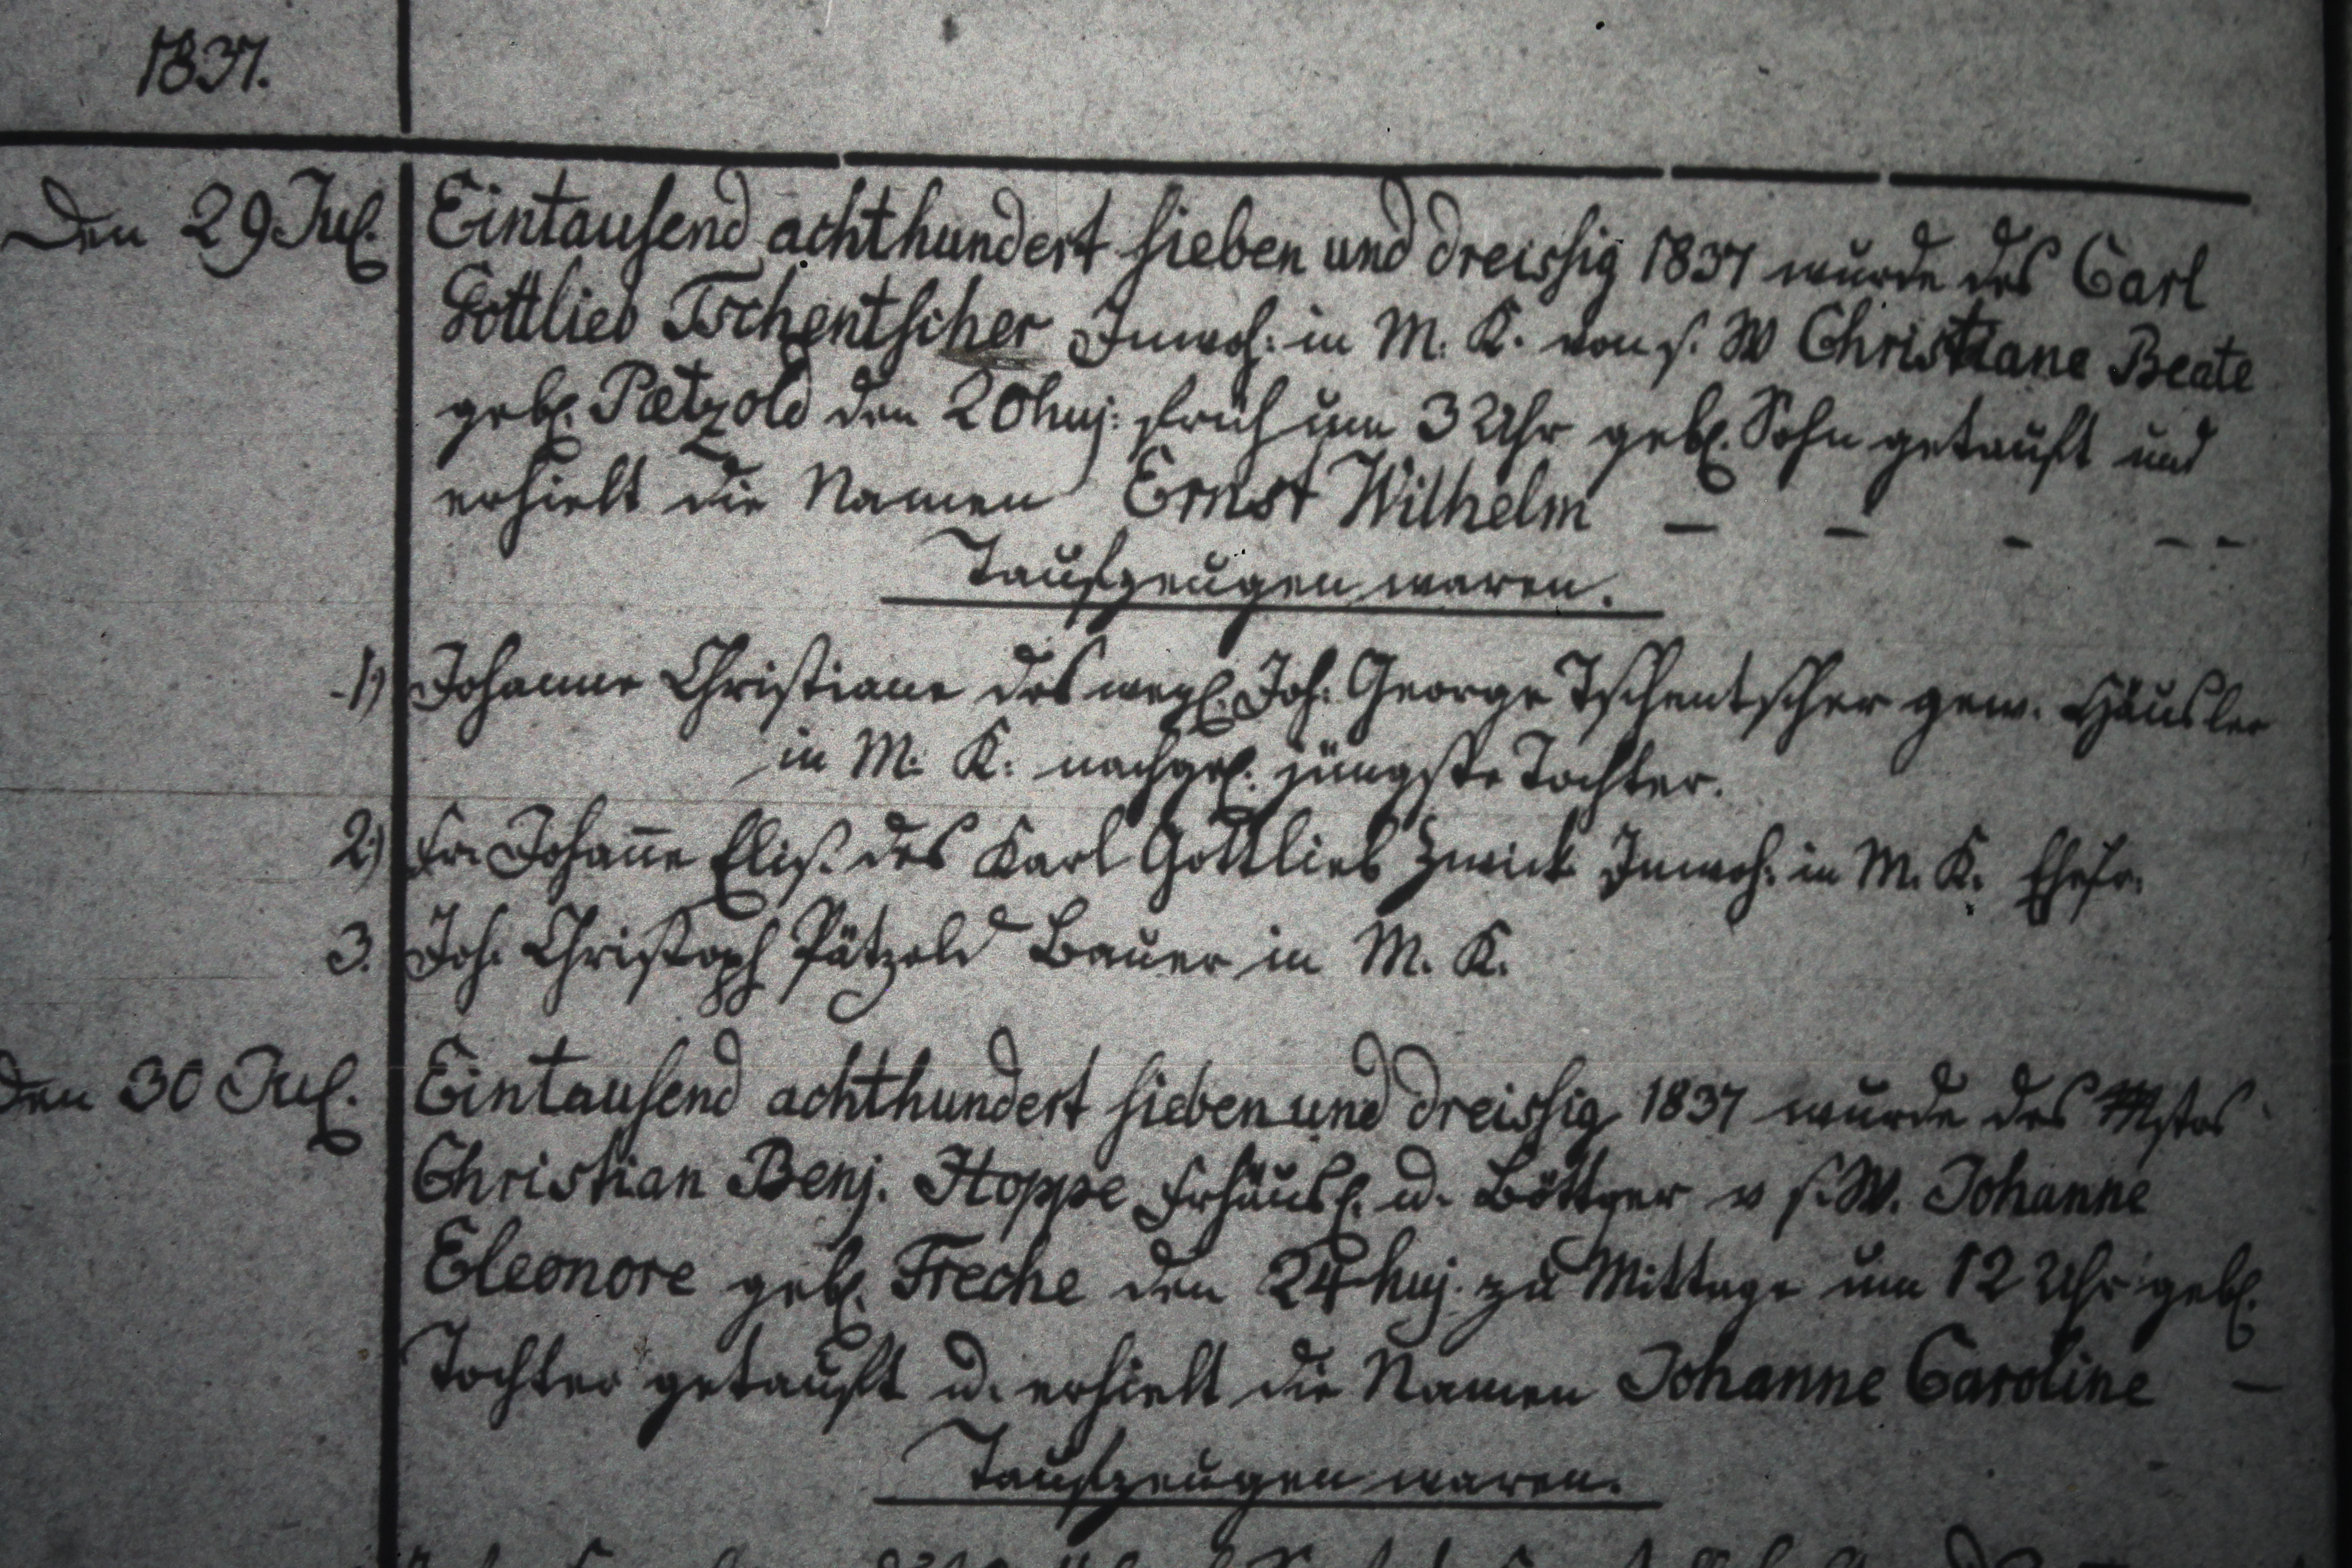 1837.
Den 29 Jul. Eintausend achthundert sieben und dreissig 1837 wurde des Carl
Gottlieb Tschentscher Inwoh: in M. K. von s. W Christiane Beate
gebl. Pætzold den 20 huj: früh um 3 Uhr gebl. Sohn getauft und
erhielt die Namen Ernst Wilhelm — — - - -
Taufzeugen waren.
1) Johanne Christiane des weyl. Joh. George Tschentscher gew. Häusler
in M. K. nachgel. jüngste Tochter.
2) Fr. Johan̅e Elis. des Karl Gottlieb Zwick Inwoh: in M. K. Ehefr.
3. Joh. Christoph Pätzold Bauer in M. K.
Den 30 Jul. Eintausend achthundert sieben und dreissig 1837 wurde des Mstrs
Christian Benj. Hoppe Frhäusl. u. Böttger v s. W. Johanne
Eleonore gebl. Freche den 24 huj. zu Mittage um 12 Uhr gebl.
Tochter getauft u. erhielt die Namen Johanne Caroline —
Taufzeugen waren.